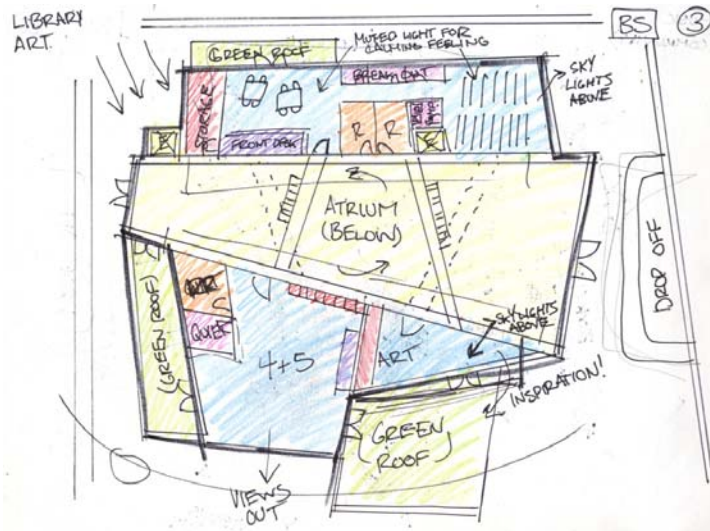 LIBRARY
ART
BS
3
GREEN ROOF
MUTED LIGHT FOR
CALMING FEELING
SKY
LIGHTS
ABOVE
STORAGE
BREAK OUT
FRONT DESK
R
R
E
E
ATRIUM
(BELOW)
DROP OFF
(GREEN ROOF)
QUIET
4+5
ART
SKYLIGHTS
ABOVE
INSPIRATION!
(GREEN
ROOF)
VIEWS
OUT